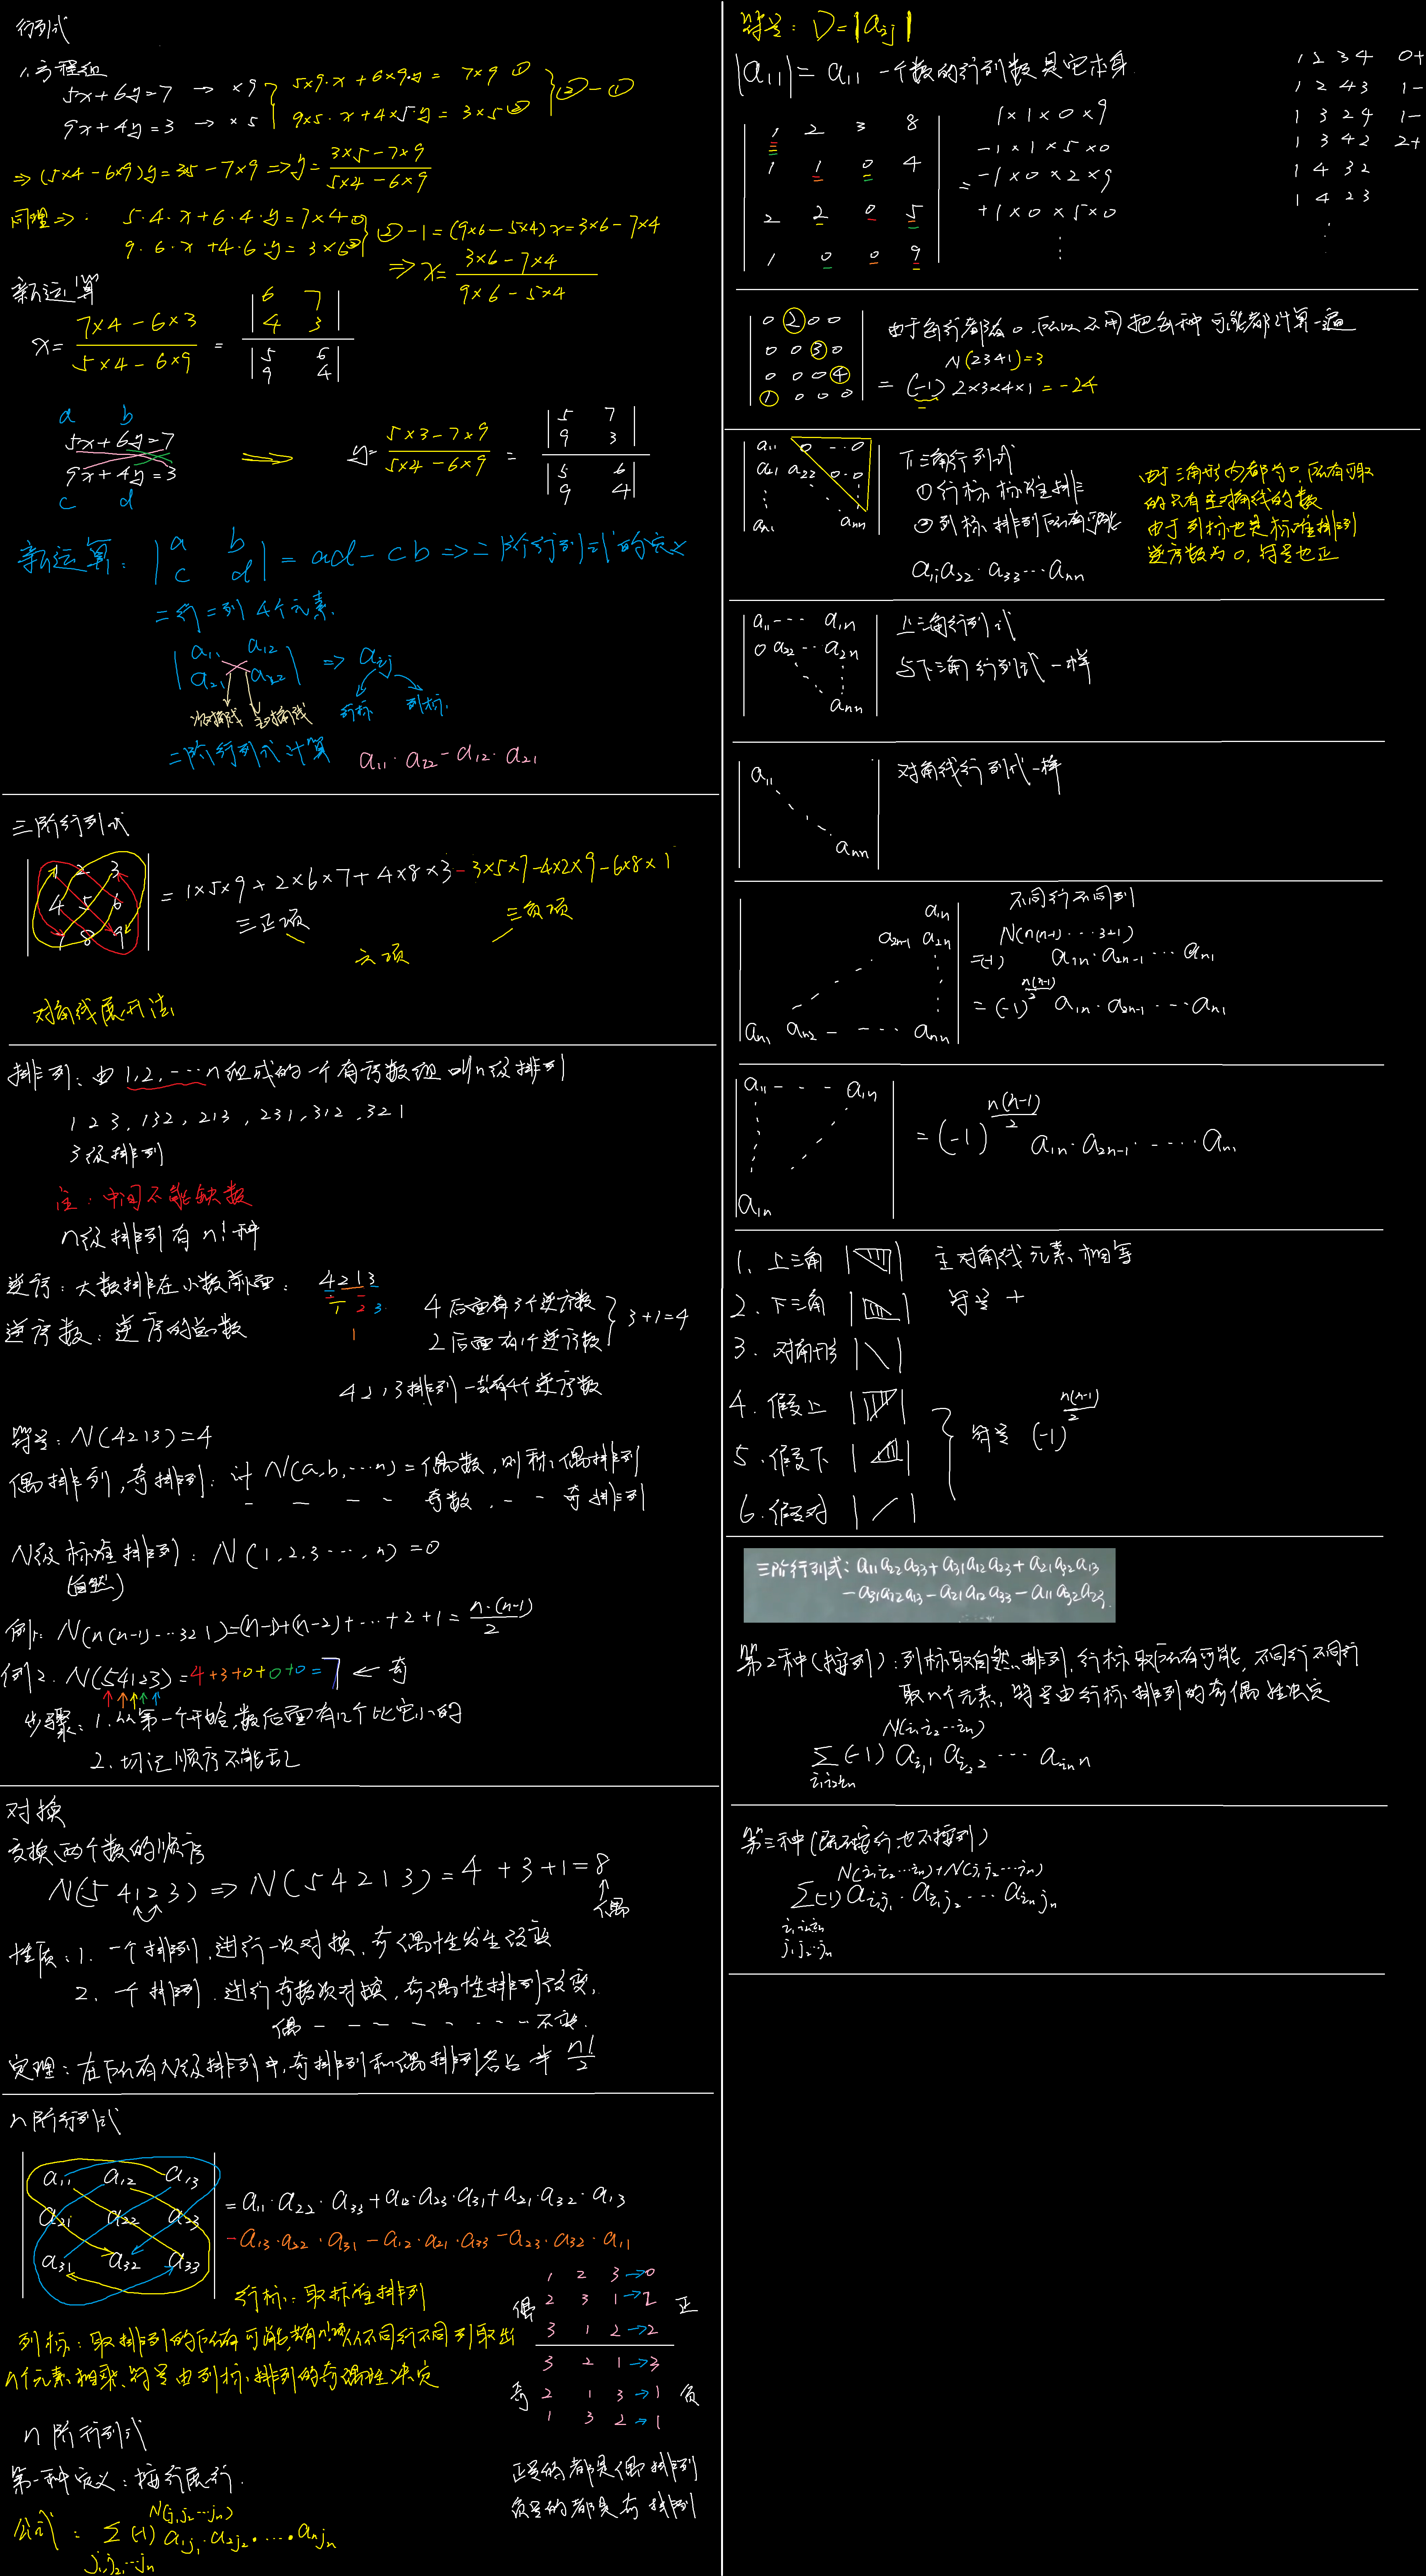 行列式
1.方程组
5x+6y=7 → ×9
9x+4y=3 → ×5
5×9·x+6×9·y= 7×9 ①
9×5·x+4×5·y= 3×5 ②
②-①
⇒(5×4-6×9)y=3×5-7×9 ⇒ y= (3×5-7×9)/(5×4-6×9)
同理⇒: 5·4·x+6·4·y=7×4 ①
9·6·x+4·6·y=3×6 ②
②-1=(9×6-5×4)x=3×6-7×4
⇒ x= (3×6-7×4)/(9×6-5×4)
新运算
x= (7×4-6×3)/(5×4-6×9) = |6 7; 4 3| / |5 6; 9 4|
a b
5x+6y=7
9x+4y=3
c d
⇒ y= (5×3-7×9)/(5×4-6×9) = |5 7; 9 3| / |5 6; 9 4|
新运算: |a b; c d| = ad-cb ⇒ 二阶行列式的定义
二行二列 4个元素.
|a11 a12; a21 a22| ⇒ aij
次对角线 主对角线 行标 列标
二阶行列式计算 a11·a22-a12·a21
三阶行列式
|1 2 3; 4 5 6; 7 8 9| = 1×5×9+2×6×7+4×8×3-3×5×7-4×2×9-6×8×1
三正项 三负项
六项
对角线展开法
排列: 由1,2,…n组成的一个有序数组 叫n级排列
123, 132, 213, 231, 312, 321
3级排列
注: 中间不能缺数
n级排列有n!种
逆序: 大数排在小数前面: 4213
逆序数: 逆序的总数
4后面有3个逆序数
2后面有1个逆序数
3+1=4
4213排列一共有4个逆序数
符号: N(4213)=4
偶排列,奇排列: 计N(a,b,…n)=偶数,则称偶排列
— — — — 奇数, — — 奇排列
N级标准排列: N(1,2,3…,n)=0
(自然)
例1: N(n(n-1)…321)=(n-1)+(n-2)+…+2+1= n·(n-1)/2
例2. N(54123)=4+3+0+0+0=7 ← 奇
步骤: 1.从第一个开始,数后面有几个比它小的
2.切记顺序不能乱
对换
交换两个数的顺序
N(54123) ⇒ N(54213)=4+3+1=8
偶
性质: 1. 一个排列,进行一次对换,奇偶性发生改变
2. 一个排列.进行奇数次对换,奇偶性排列改变,
偶 — — — — — — — 不变.
定理: 在所有N级排列中,奇排列和偶排列各占半 n!/2
n阶行列式
|a11 a12 a13; a21 a22 a23; a31 a32 a33| = a11·a22·a33+a12·a23·a31+a21·a32·a13
-a13·a22·a31-a12·a21·a33-a23·a32·a11
行标: 取标准排列
列标: 取排列的所有可能,共有n!项从不同行不同列取出
n个元素相乘,符号由列标排列的奇偶性决定
1 2 3→0
偶 2 3 1→2 正
3 1 2→2
3 2 1→3
奇 2 1 3→1 负
1 3 2→1
正号的都是偶排列
负号的都是奇排列
n阶行列式
第一种定义: 按行展行.
公式: ∑(j1j2…jn) (-1)^N(j1j2…jn) a1j1·a2j2·….anjn
符号: D=|aij|
|a11|=a11 一个数的行列数是它本身
|1 2 3 8; 1 1 0 4; 2 2 0 5; 1 0 0 9| =
1×1×0×9
-1×1×5×0
-1×0×2×9
+1×0×5×0
⋮
1 2 3 4 0+
1 2 4 3 1-
1 3 2 4 1-
1 3 4 2 2+
1 4 3 2
1 4 2 3
⋮
|0 2 0 0; 0 0 3 0; 0 0 0 4; 1 0 0 0|
由于每行都有0,所以不用把每种可能都计算一遍
N(2341)=3
= (-1) 2×3×4×1=-24
|a11 0 … 0; a21 a22 0 0; ⋮; an1 … ann|
下三角行列式
①行标 标准排
②列标 排列所有可能
a11a22·a33…ann
由于三角形内都为0,所有可取
的只有主对角线的数
由于列标也是标准排列
逆序数为0,符号也正
|a11 … a1n; 0 a22 … a2n; ann|
上三角行列式
与下三角行列式一样
|a11 ⋱ ann| 对角线行列式一样
|a1n; a2n-1 a2n; an1 an2 … ann|
不同行不同列
=(-1)^N(n(n-1)…321) a1n·a2n-1…an1
=(-1)^(n(n-1)/2) a1n·a2n-1·…an1
|a11 … a1n; ⋮; a1n| =(-1)^(n(n-1)/2) a1n·a2n-1·….an1
1. 上三角 主对角线元素相等
2. 下三角 符号 +
3. 对角形
4. 假上
5. 假下 符号 (-1)^(n(n-1)/2)
6. 假对
三阶行列式: a11a22a33+a31a12a23+a21a32a13
-a31a22a13-a21a12a33-a11a32a23.
第2种(按列): 列标取自然排列,行标取所有可能,不同行不同行
取n个元素,符号由行标排列的奇偶性决定
∑(i1i2…in) (-1)^N(i1i2…in) ai11 ai22 … ainn
第三种(既不按行也不按列)
∑(i1i2…in; j1j2…jn) (-1)^N(i1i2…in)+N(j1j2…jn) ai1j1·ai2j2…ainjn